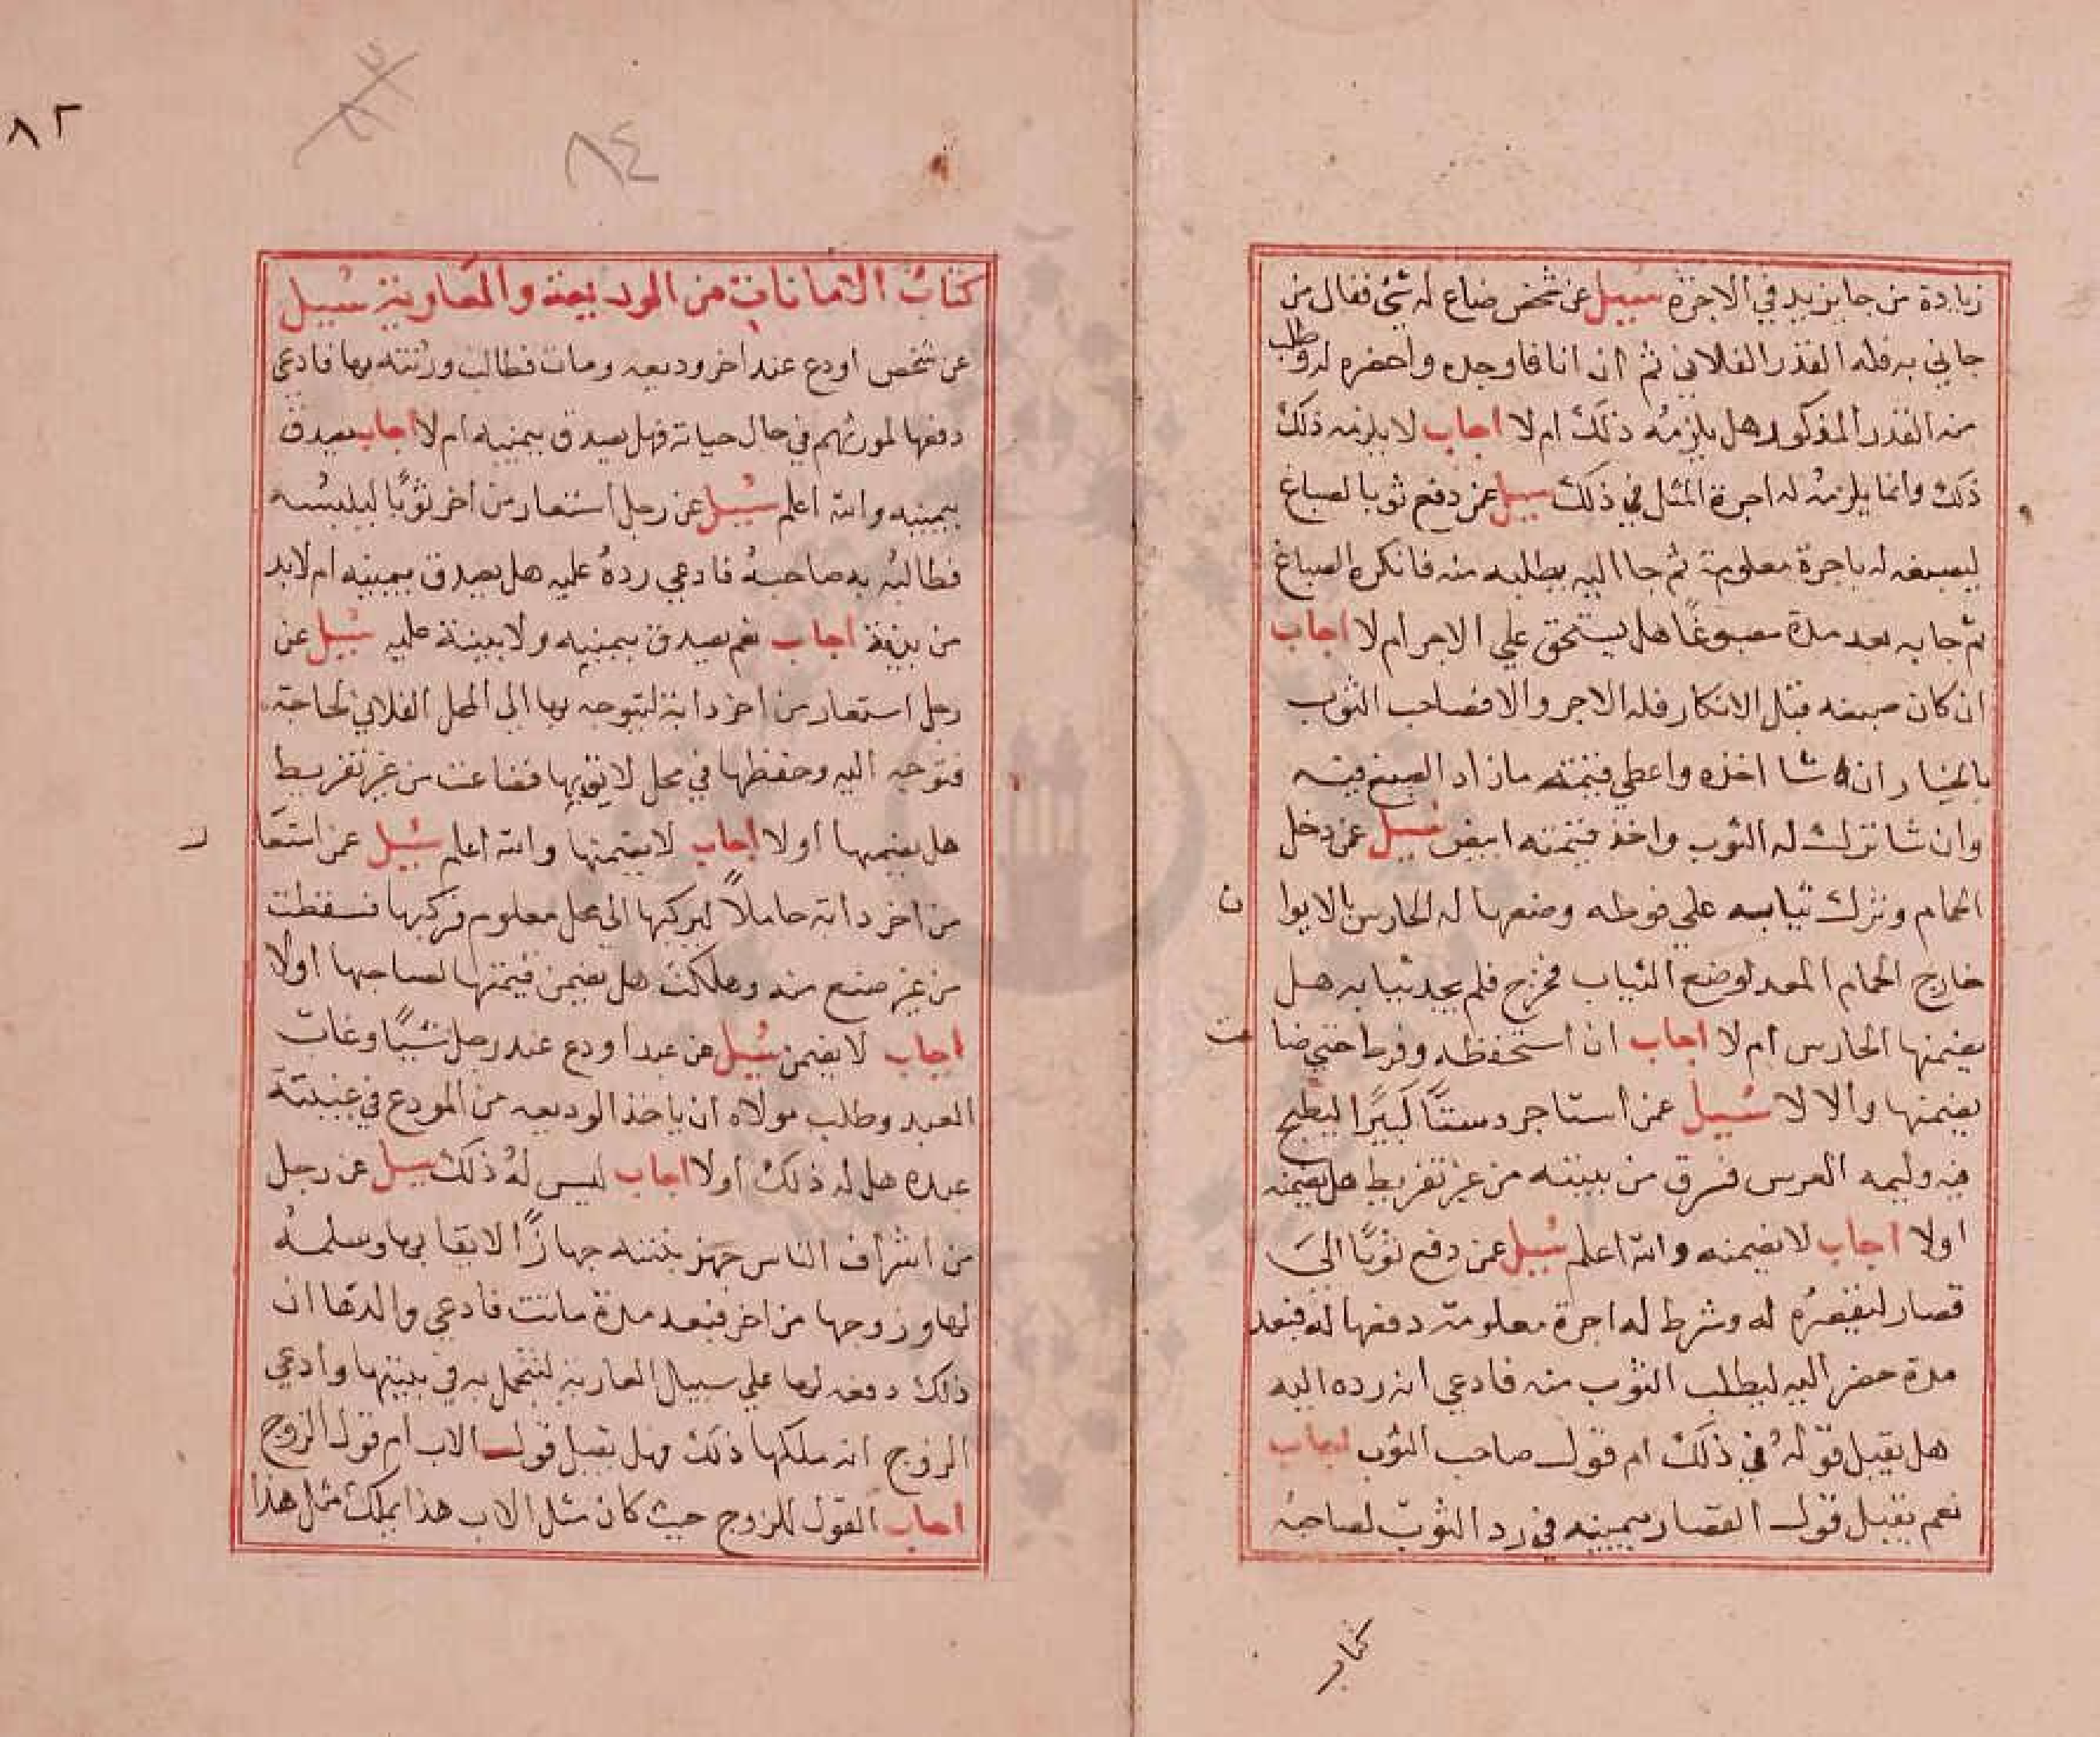 زيادة من جا يزيد في الاجرة سيل عن شخص ضاع له شي فقال من
جاني به فله القدر الفلاني ثم ان انسانا وجده واحضره له وطلب
منه القدر المذكور هل يلزمه ذلك ام لا اجاب لا يلزمه ذلك
ذلك وانما يلزمه له اجرة المثل في ذلك سيل عن دفع ثوبا لصباغ
ليصبغه له باجرة معلومة ثم جا اليه يطلبه منه فانكره الصباغ
ثم جا به بعد مدة مصبوغا هل يستحق علي الاجر ام لا اجاب
ان كان صبغه قبل الانكار فله الاجر والا فصاحب الثوب
بالخيار ان شا اخذه واعطي قيمته ما زاد الصبغ فيه
وان شا ترك له الثوب واخذ قيمته ابيض سيل عن دخل
الحمام وترك ثيابه علي فوطه وضعها له الحارس بالايوا
ن
خارج الحمام المعد لوضع الثياب فخرج فلم يجد ثيابه هل
يضمنها الحارس ام لا اجاب ان استحفظه وفرط حتي ضا
عت
يضمنها والا لا سيل عن استاجر دستًا كبيرًا ليطبخ
فيه وليمه العرس فسرق من بيته من غير تفريط هل يضمنه
اولا اجاب لا يضمنه والله اعلم سيل عن دفع ثوبًا الي
قصار ليقصره له وشرط له اجرة معلومة دفعها له فبعد
مدة حضر اليه ليطلب الثوب منه فادعي انه رده اليه
هل يقبل قوله في ذلك ام قول صاحب الثوب اجاب
نعم يقبل قول القصار بيمينه في رد الثوب لصاحبه
كتاب
٨٢
٨٤
كتاب الامانات من الوديعة والعارية سيل
عن شخص اودع عند اخر وديعه ومات فطالب ورثته بها فادعي
دفعها لمورثهم في حال حياته فهل يصدق بيمينه ام لا اجاب يصدق
بيمينه والله اعلم سيل عن رجل استعار من اخر ثوبًا ليلبسه
فطالبه به صاحبه فادعي رده عليه هل يصدق بيمينه ام لا بد
من بينة اجاب نعم يصدق بيمينه ولا بينة عليه سيل عن
رجل استعار من اخر دابة ليتوجه بها الي المحل الفلاني لحاجة
فتوجه اليه وحفظها في محل لايق بها فضاعت من غير تفريط
هل يضمنها اولا اجاب لا يضمنها والله اعلم سيل عن استعا
ر
من اخر دابة حاملاً ليركبها الي محل معلوم فركبها فسقطت
من غير صنع منه وهلكت هل يضمن قيمتها لصاحبها اولا
اجاب لا يضمن سيل عن عبد اودع عند رجل شيًا وغاب
العبد وطلب مولاه ان ياخذ الوديعه من المودع في غيبته
عبده هل له ذلك اولا اجاب ليس له ذلك سيل عن رجل
من اشراف الناس جهز بنته جهازًا لايقا بها وسلمه
لها وزوجها من اخر فبعد مدة ماتت فادعي والدها ان
ذلك دفعه لها علي سبيل العارية لتتجمل به في بيتها وادعي
الزوج انه ملكها ذلك فهل يقبل قول الاب ام قول الزوج
اجاب القول للزوج حيث كان مثل الاب هذا يملك مثل هذا